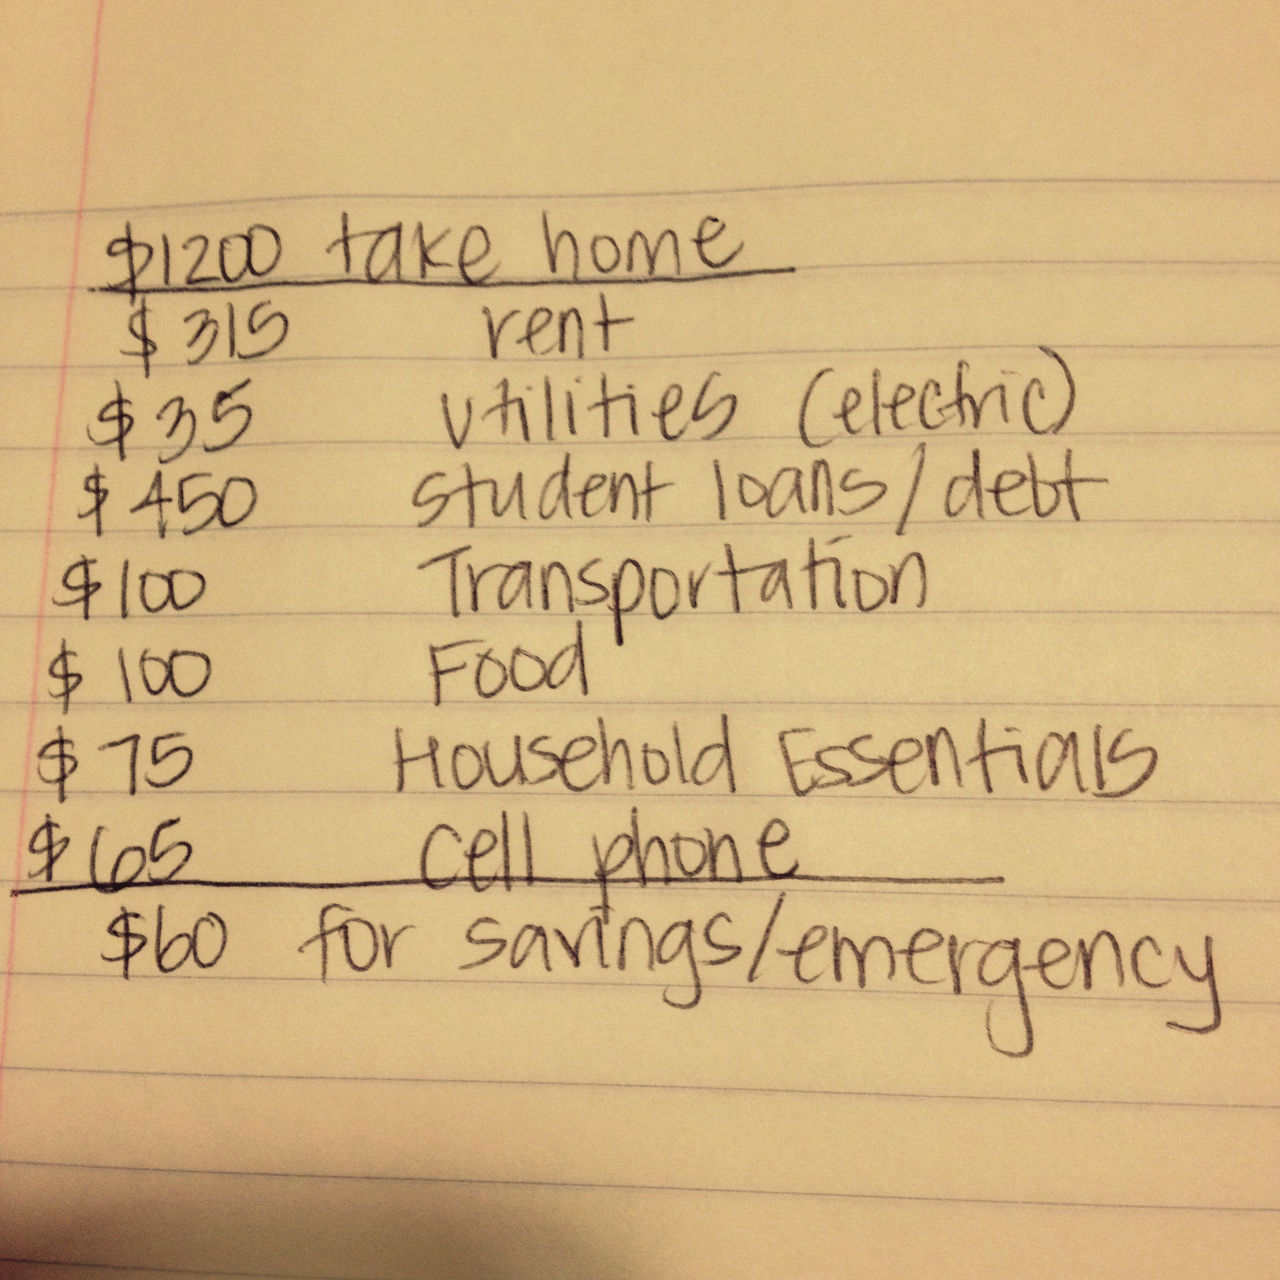 $1200 take home
$315 rent
$35 utilities (electric)
$450 student loans/debt
$100 Transportation
$100 Food
$75 Household Essentials
$65 cell phone
$60 for savings/emergency